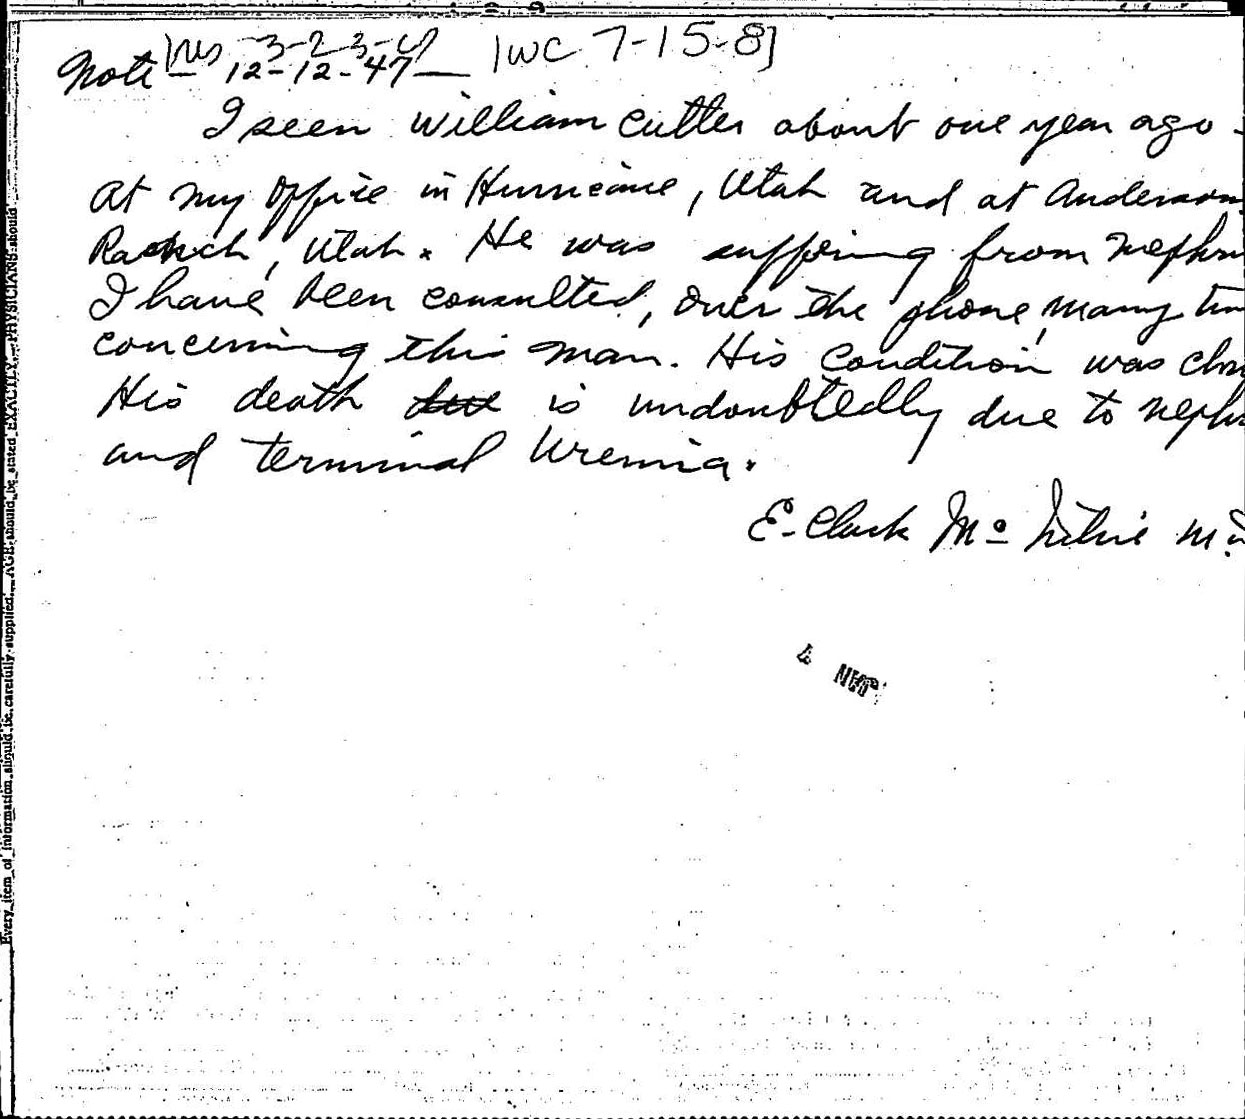 Note — 12-12-47 — IWC 7-15-8]
I seen William Cutler about one year ago -
at my office in Hurricane, Utah and at Anderson
Ranch, Utah. He was suffering from Nephri
I have been consulted, over the phone, many tim
concerning this man. His condition was chro
His death is undoubtedly due to nephr
and terminal Uremia.
E. Clark Mc
JAN
Every item of information should be carefully supplied. AGE should be stated EXACTLY. PHYSICIANS should